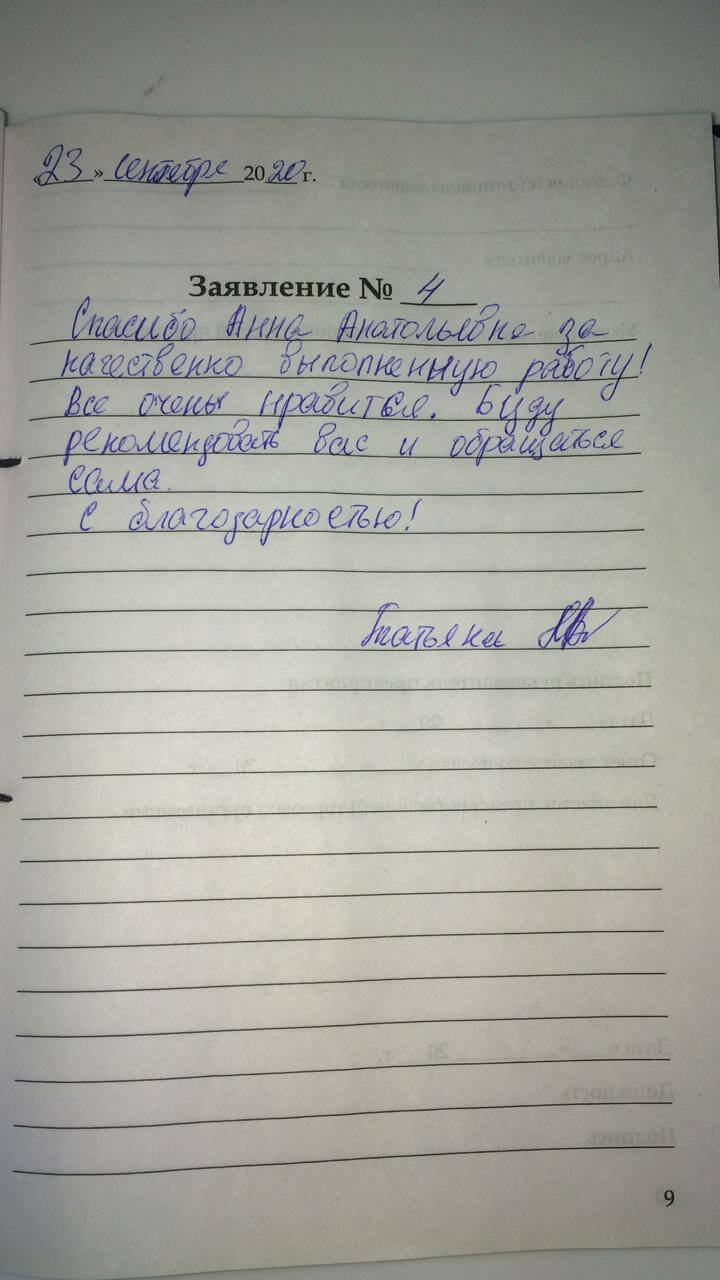 «23» сентебре 2020 г.
Заявление № 4
Спасибо Анна Анатольевна за
качественно выполненную работу!
Все очень нравится. Буду
рекомендовать вас и обращаться
сама.
С благодарностью!
Татьяна
9